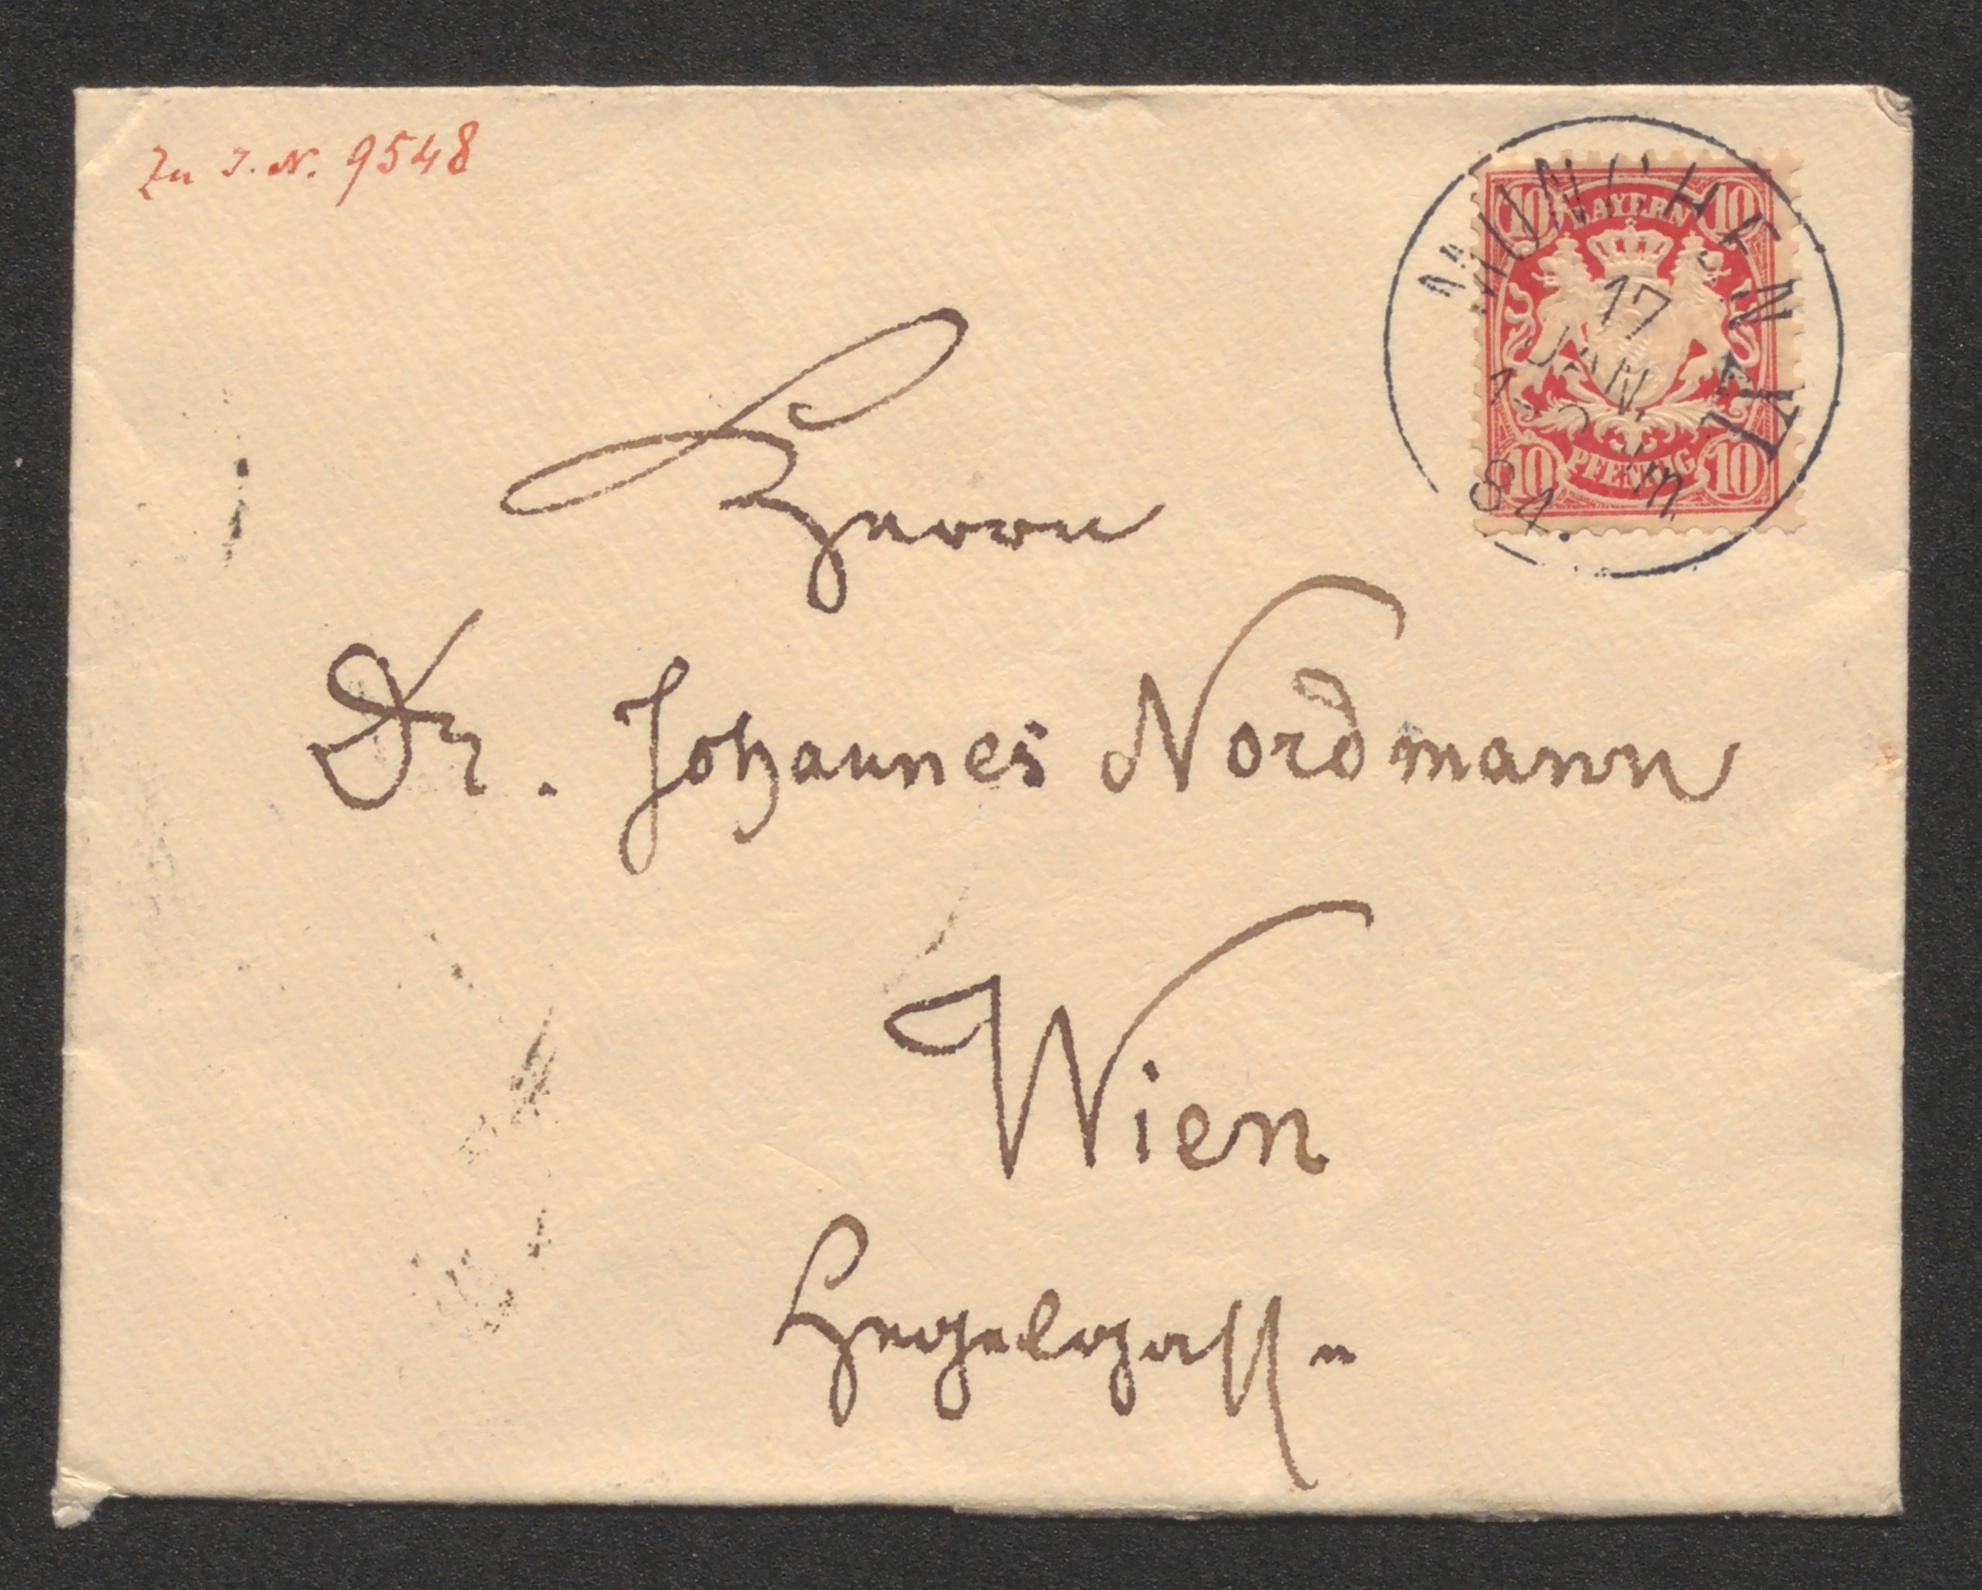 Zu I.N. 9548
10 BAYERN 10
10 PFENNIG 10
MÜNCHEN
17
JAN
84
Herrn
Dr. Johannes Nordmann
Wien
Hegelgasse